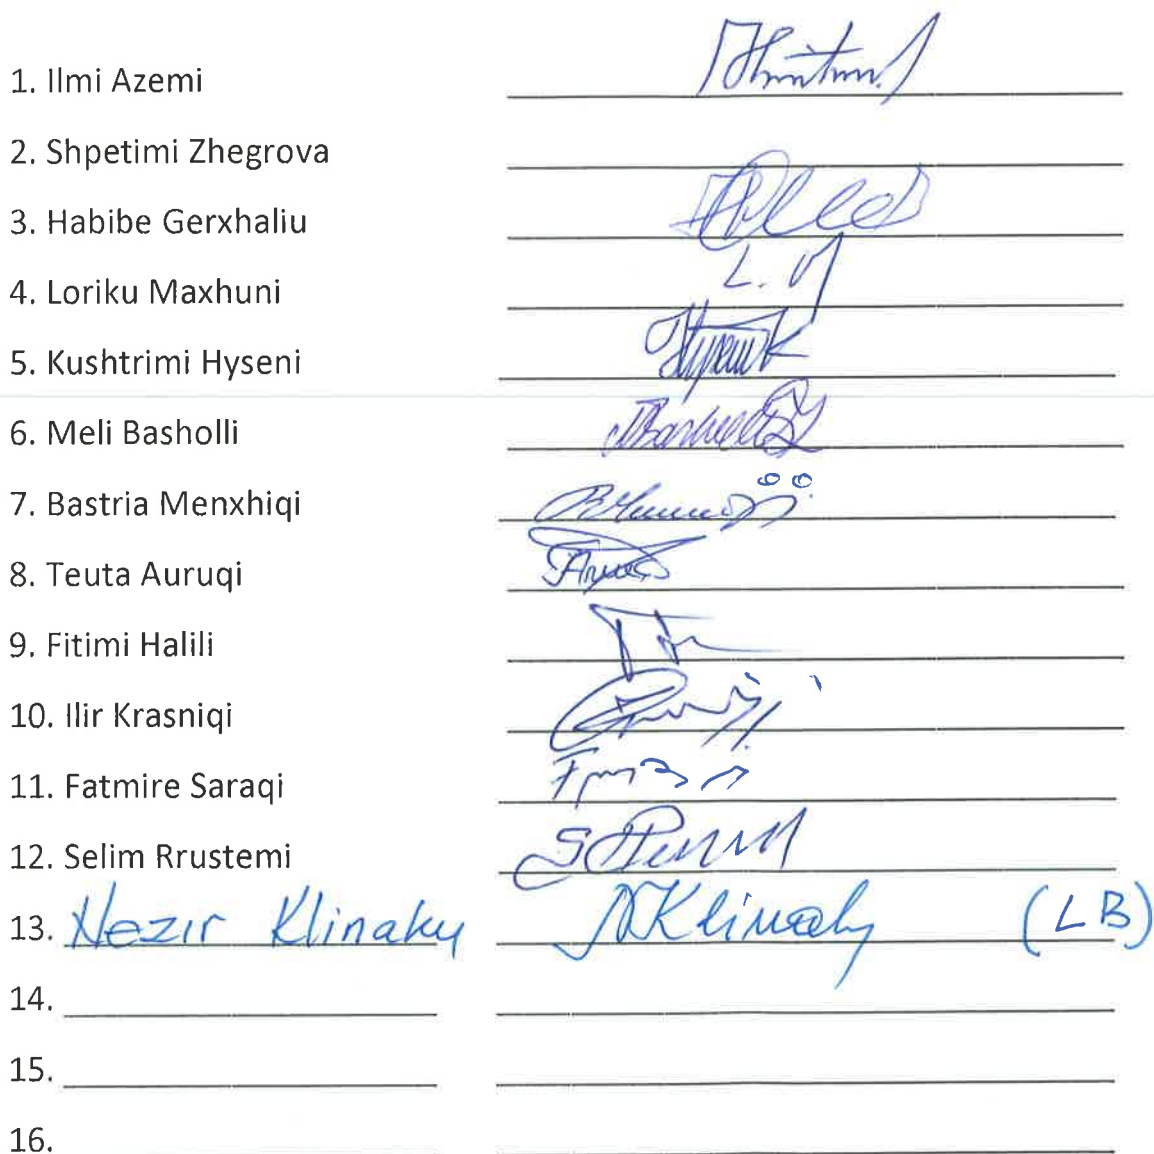 1. Ilmi Azemi
2. Shpetimi Zhegrova
3. Habibe Gerxhaliu
4. Loriku Maxhuni L. M
5. Kushtrimi Hyseni
6. Meli Basholli
7. Bastria Menxhiqi
8. Teuta Auruqi
9. Fitimi Halili
10. Ilir Krasniqi
11. Fatmire Saraqi
12. Selim Rrustemi
13. Nezir Klinaku NKlinaku (LB)
14.
15.
16.